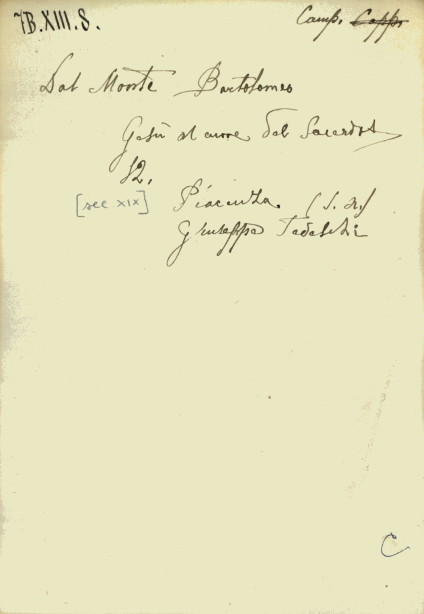 7B.XIII.8.
Camp. Capp.
Dal Monte Bartolomeo
Gesù al cuore del Sacerdot
12.
[sec XIX] Piacenza (s. n.)
Giuseppe Tedeschi
C